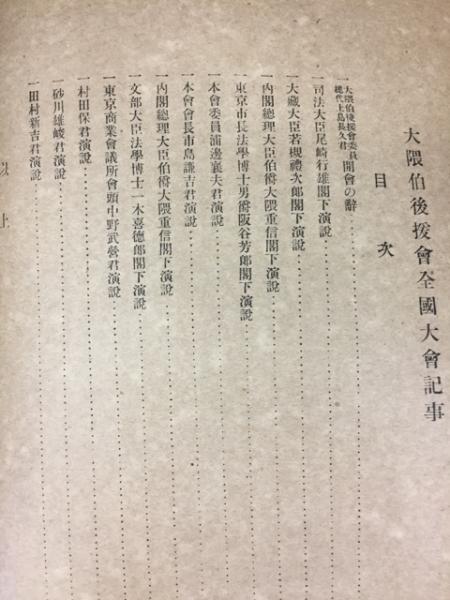 大隈伯後援會全國大會記事
目次
一大隈伯後援會委員總代上島長久君開會の辭
一司法大臣尾崎行雄閣下演說
一大藏大臣若槻禮次郎閣下演說
一內閣總理大臣伯爵大隈重信閣下演說
一東京市長法學博士男爵阪谷芳郎閣下演說
一本會委員浦邊襄夫君演說
一本會會長市島謙吉君演說
一內閣總理大臣伯爵大隈重信閣下演說
一文部大臣法學博士一木喜德郎閣下演說
一東京商業會議所會頭中野武營君演說
一村田保君演說
一砂川雄峻君演說
一田村新吉君演說
以上